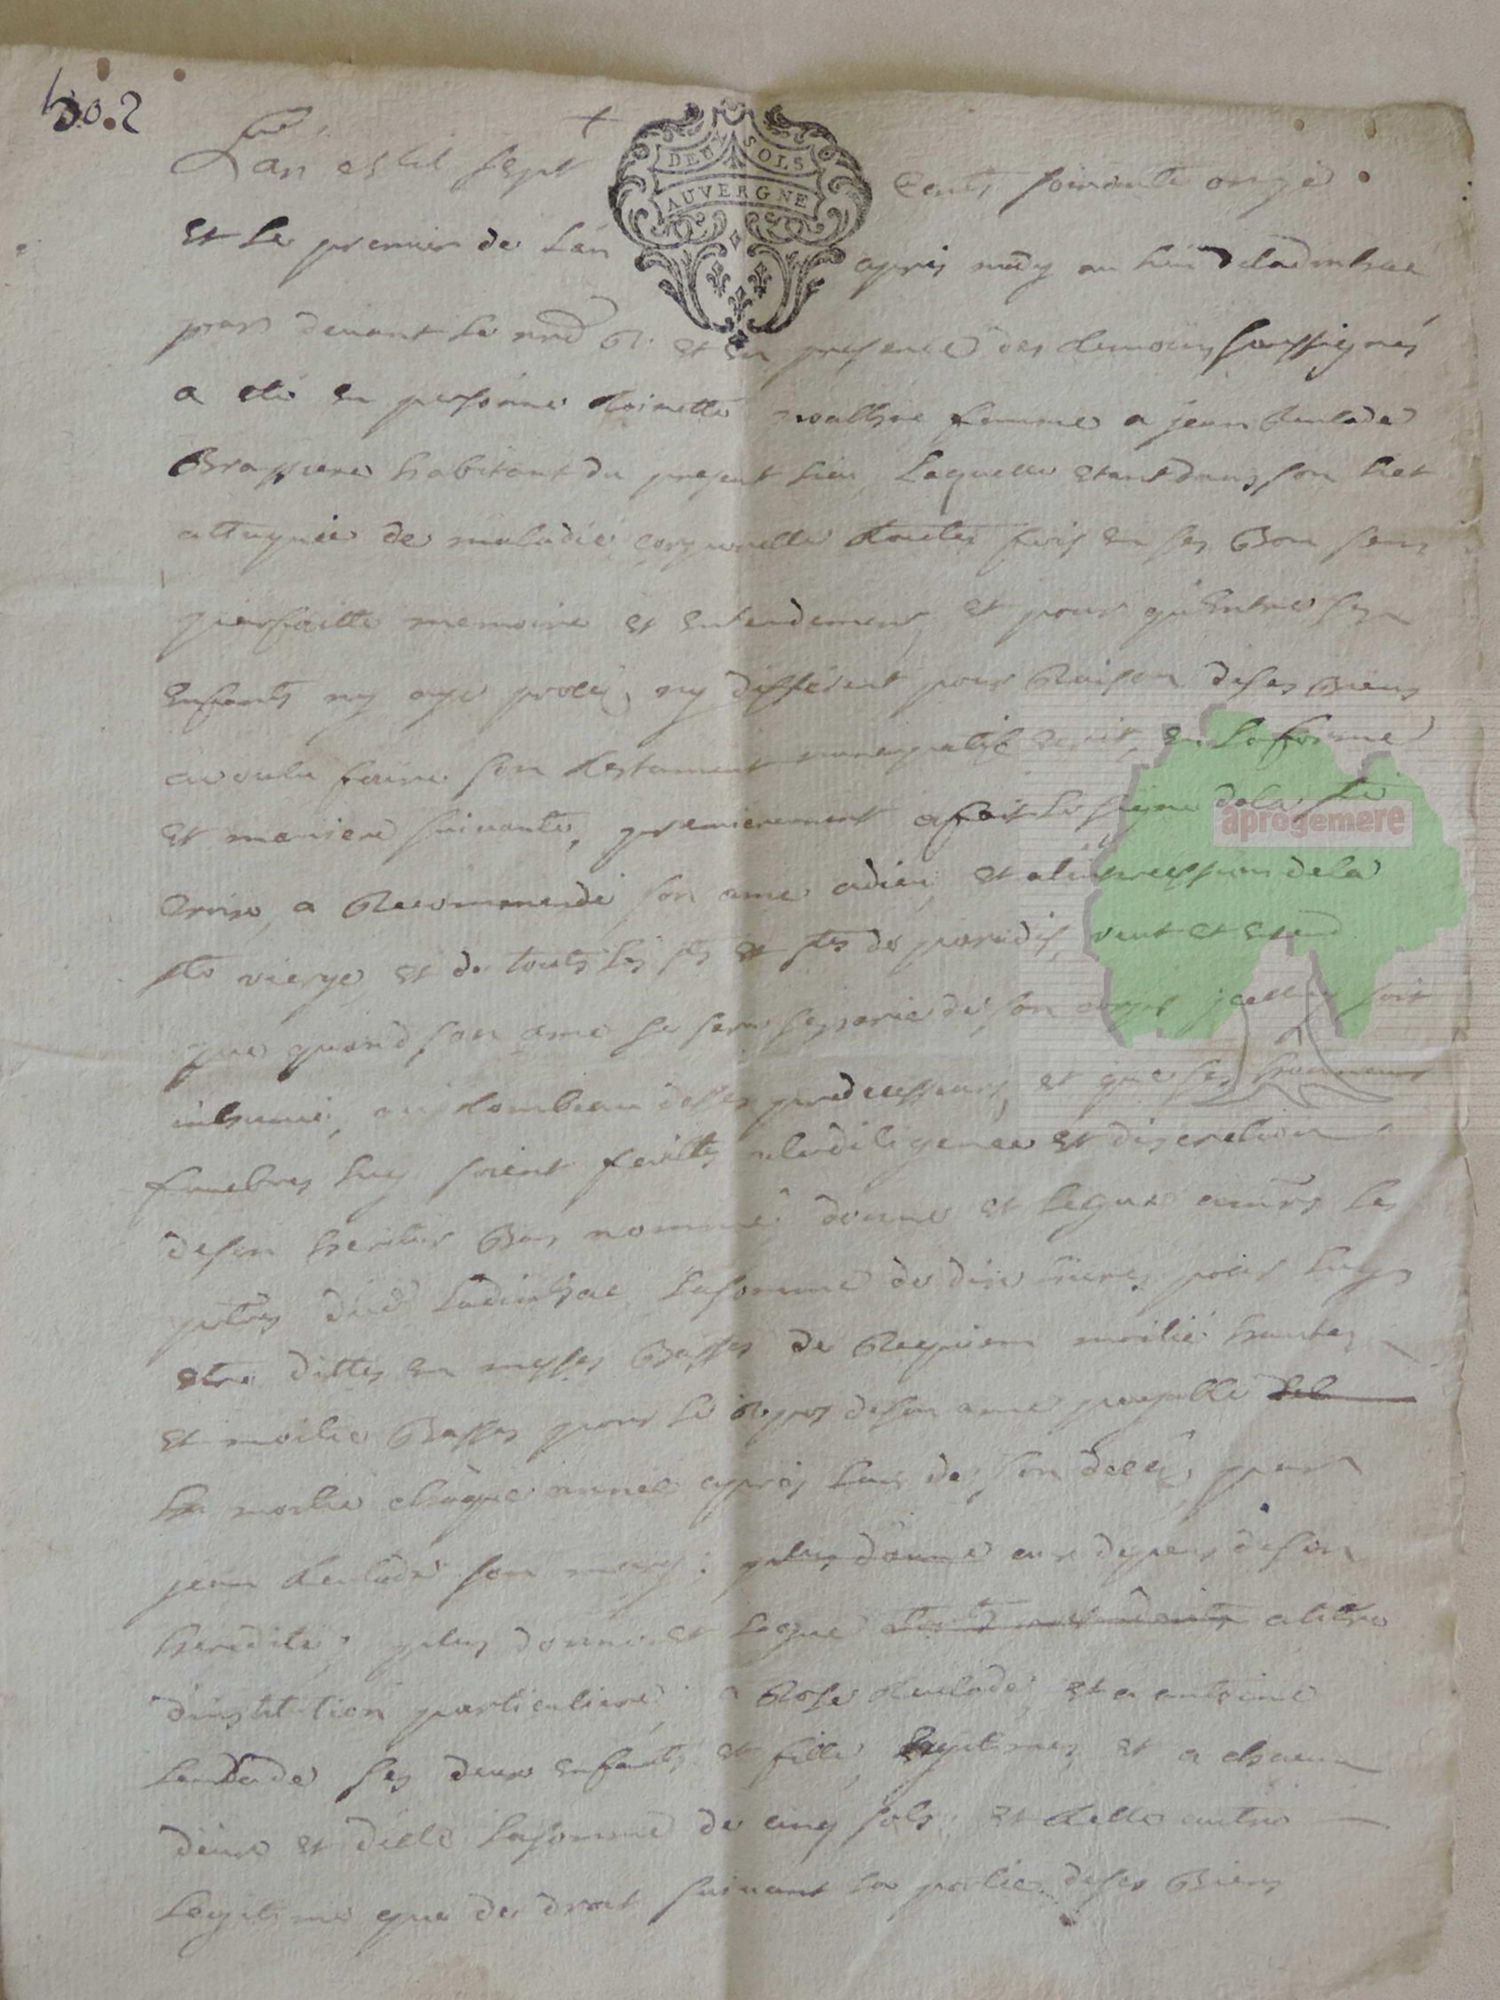 502
DEUX SOLS
AUVERGNE
L'an mil sept cents soixante onze
et le premier de l'an apres midy au lieu de ladinhac
par devant le nre R. et en presence des temoins soussignés
a été en personne toinette femme a jean
Brassiere habitant du present lieu Laquelle etant dans son liet
attaquée de maladie corporelle toutes fois en ses Bon sens
parfaitte memoire et entendement, et pour qu'entre ses
enfants ny aye proces ny different pour Raison de ses Biens
a voulu faire son testament nuncupatif ecrit, en la forme
et maniere suivante, premierement a fait le signe de la ste
Croix, a Recommendé son ame a dieu, et a l'intercession de la
ste vierge et de touts les sts et stes de paradis, veut et etend
que quand son ame se sera separée de son corps icelluy soit
inhumé, au tombeau de ses predecesseurs, et que ses honneurs
funebres luy soient faittes a la diligence et discretion
de son heritier Bas nommé donne et legue a mrs les
ptres dud ladinhac la somme de dix livres pour luy
etre dittes en messes Basses de Requiem moitié hautes
et moitie Basses pour le Repos de son ame payable
la moitie chaque année apres lan de son decés, par
jean son mary; plus donne aux depens de son
heredité; plus donne et legue a titre
d'institution particuliere a Rose et a antoine
ses deux enfants et fille legitimes et a chacun
deux et d'elle la somme de cinq sols; et telle autre
legitime que de droit suivant la portée de ses Biens
aprogemere